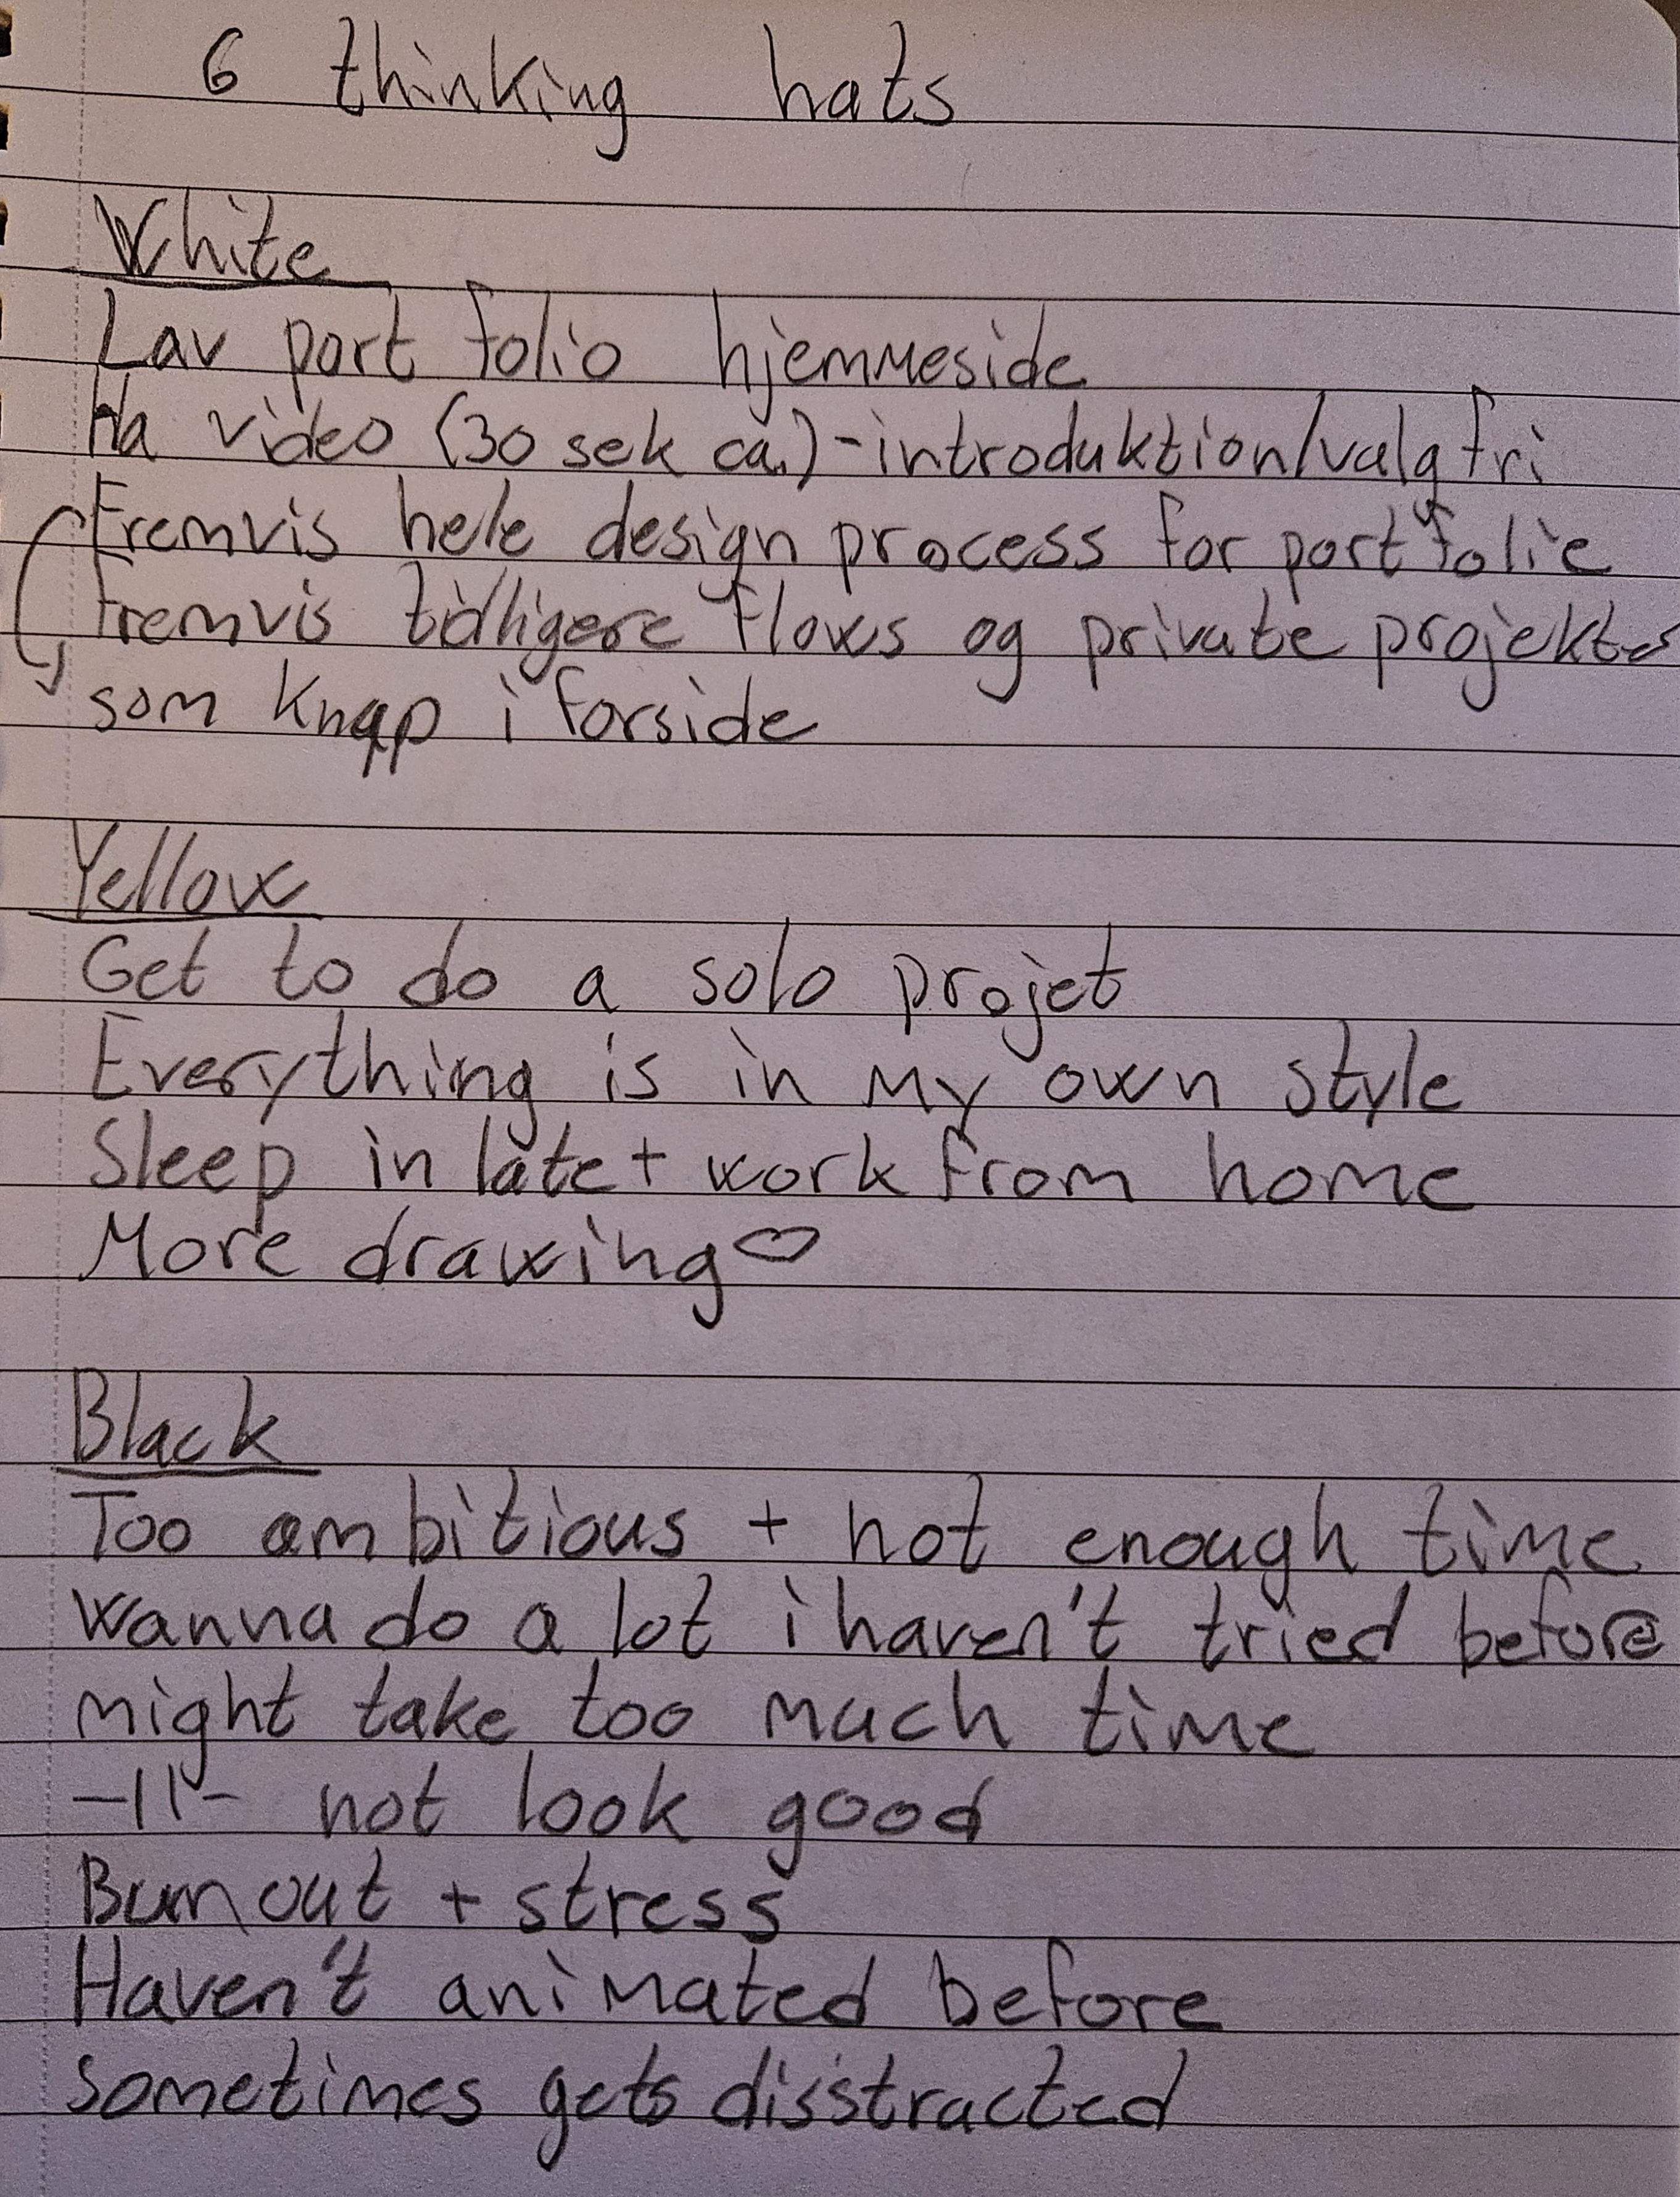 6 thinking hats
White
Lav port folio hjemmeside
Ha video (30 sek ca.)-introduktion/valgfri
Fremvis hele design process for port folie
Fremvis tidligere flows og private projekter
som knap i forside
Yellow
Get to do a solo projet
Everything is in my own style
Sleep in late + work from home
More drawing♡
Black
Too ambitious + not enough time
wanna do a lot i haven't tried before
might take too much time
-||- not look good
Burnout + stress
Haven't animated before
sometimes gets disstracted